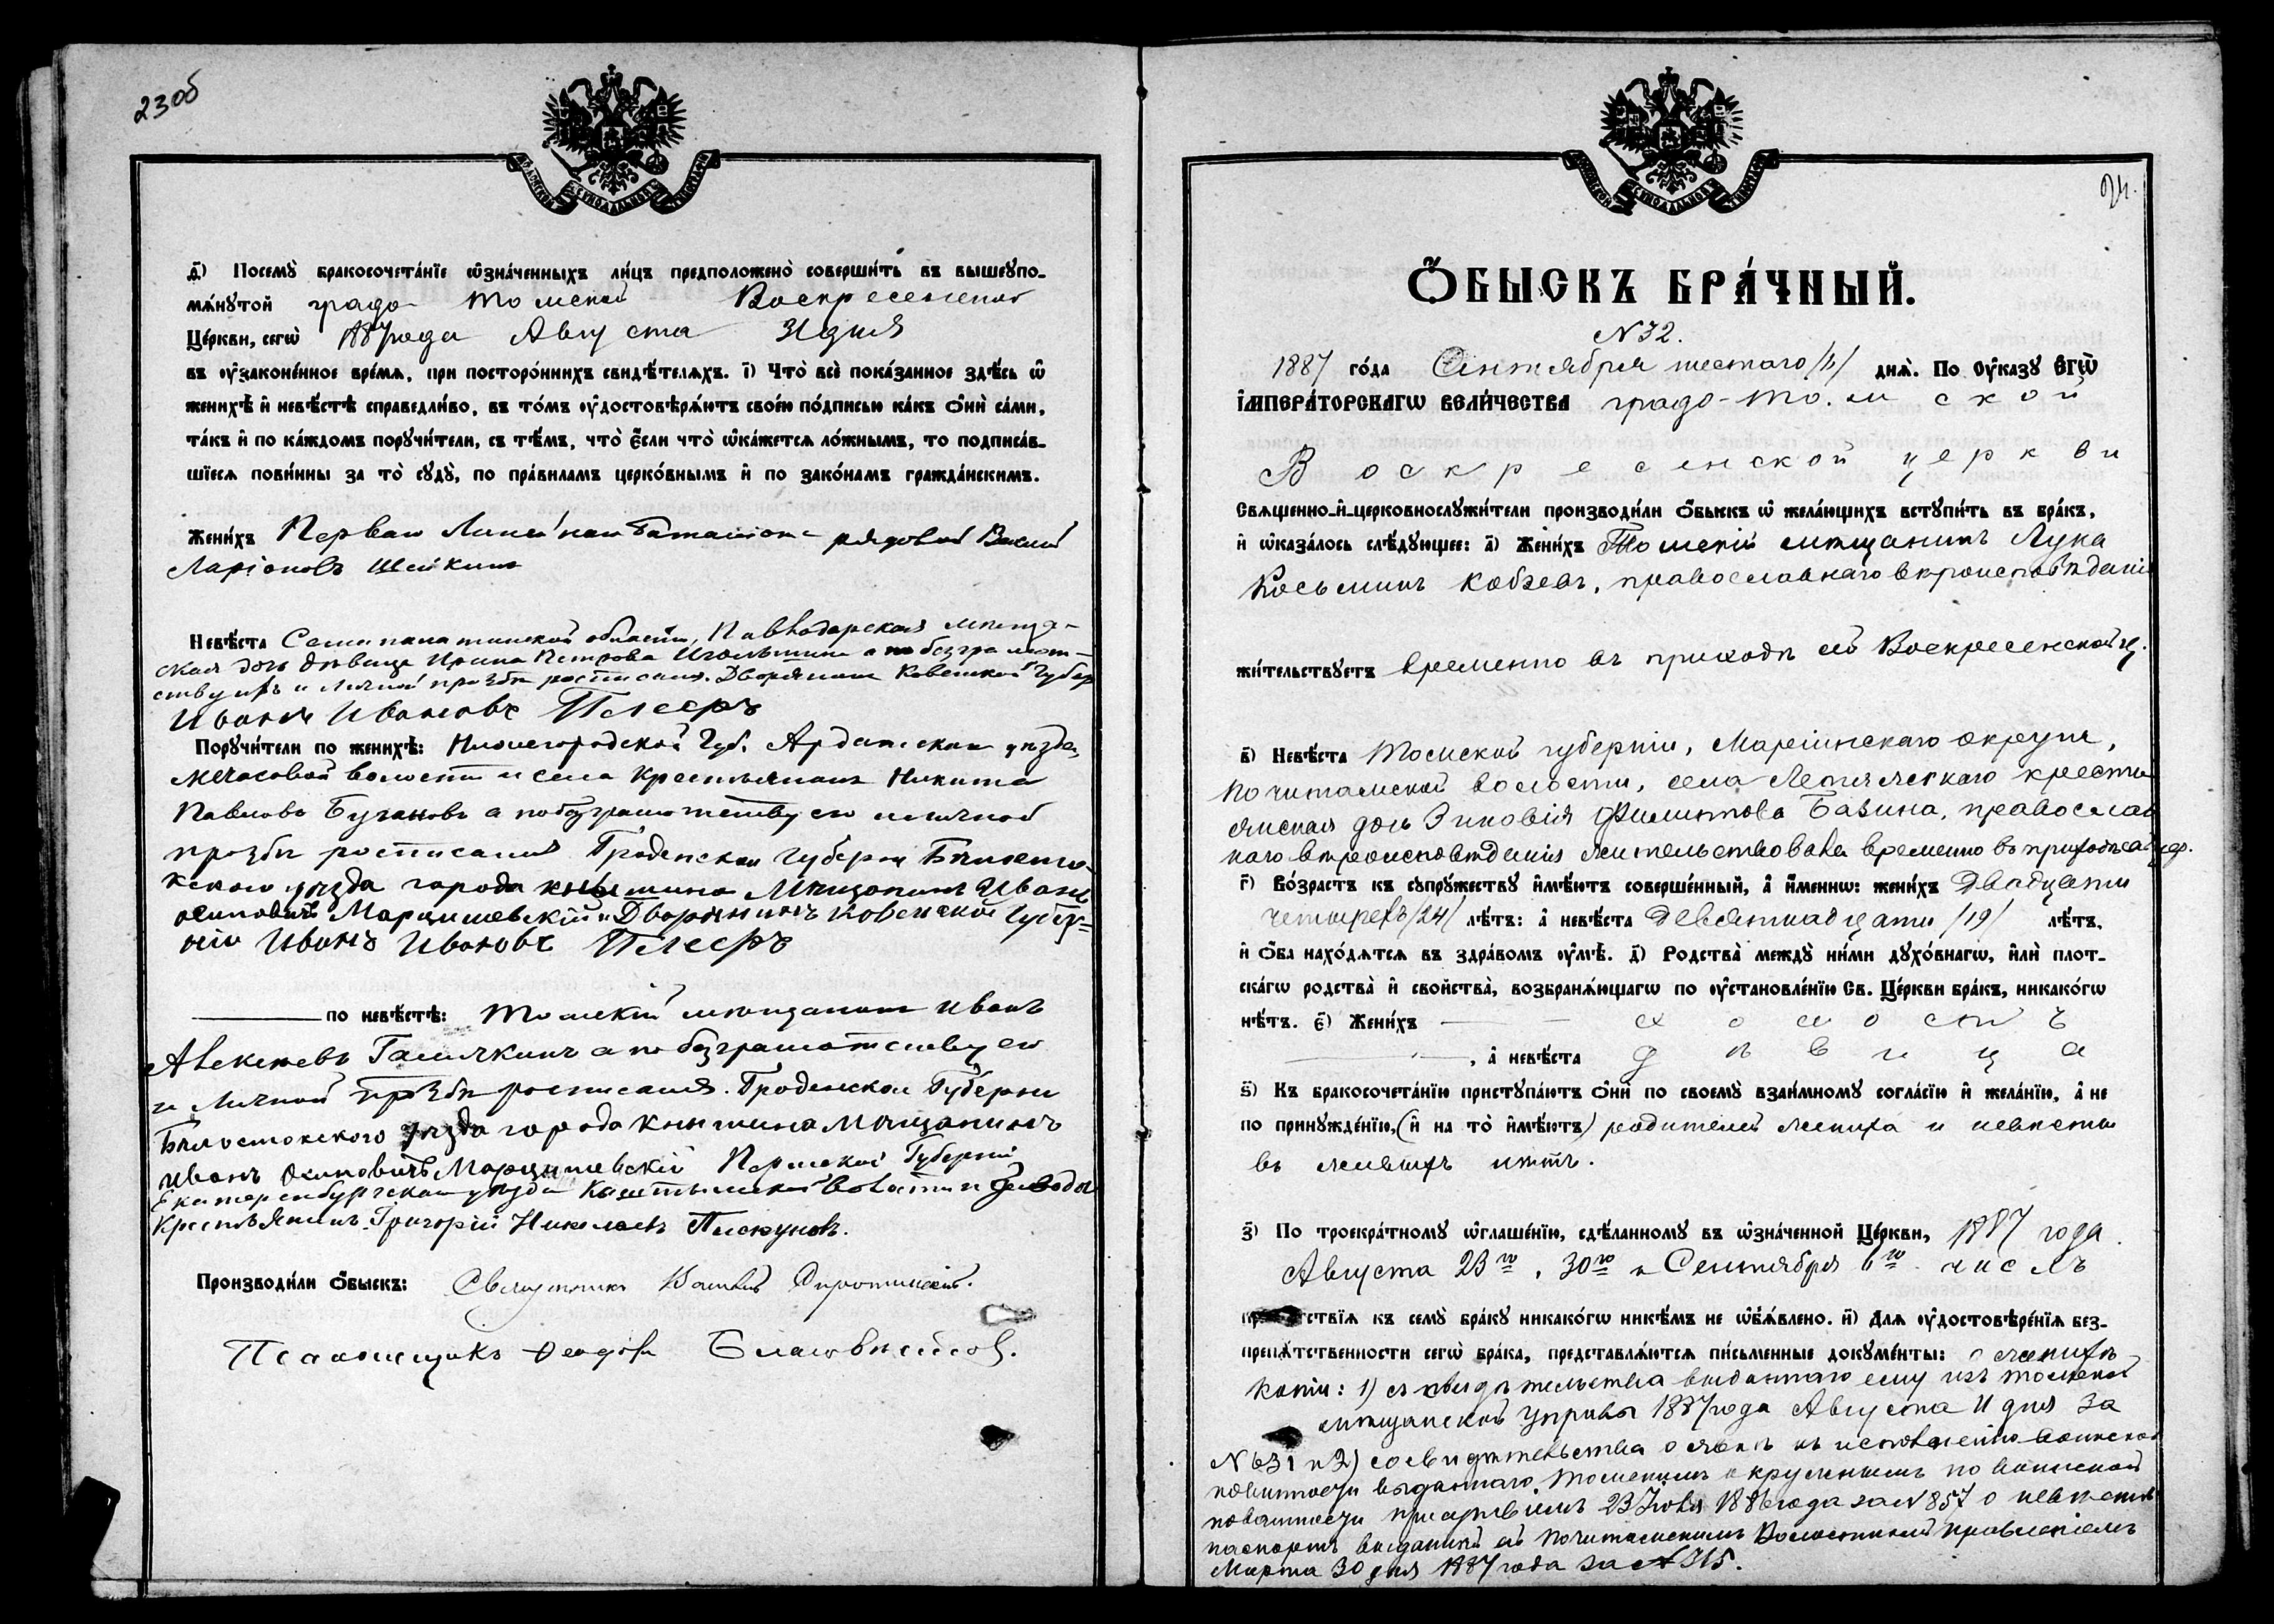 23об
д҃) Посему̀ бракосочета́нїе ѡ҆зна́ченныхъ ли́цъ предположено̀ соверши́ть въ вышеупо-
мѧ́нутой градо Томской Воскресенской
Це́ркви, сегѡ̀ 1887 года Августа 31 дня
въ ѹ҆зако́ненное вре́мѧ, при посторо́ннихъ свидѣ́телѧхъ. і҃) Что̀ всѐ пока́занное здѣ́сь ѡ҆
женихѣ̀ и҆ невѣ́стѣ справедли́во, въ то́мъ ѹ҆достовѣрѧ́ютъ свое́ю по́дписью ка́къ ѻ҆нѝ са́ми,
та́къ и҆ по ка́ждомъ поручи́тели, съ тѣ́мъ, что̀ є҆́сли что̀ ѡ҆ка́жетсѧ ло́жнымъ, то подписа́в-
шїесѧ пови́нны за то̀ суду̀, по пра́виламъ церко́внымъ и҆ по зако́намъ гражда́нскимъ.
Жени́хъ Перваго Линейнаго баталіона рядовой
Ларіоновъ Шейкинъ
Невѣ́ста Семипалатинской области, Павлодарская мѣща-
ская дочь дѣвица Ирина Петрова а по безграмот-
ству ихъ и личной прозбѣ росписался. Дворянинъ Ковенской Губер
Иванъ Ивановъ Плесеръ
Поручи́тели по женихѣ̀: Нижегородской Губ. Ардатскаго уѣзда,
волости и села Крестьянинъ Никита
Павловъ Бугановъ а по безграмотству его и личной
прозбѣ росписался Гродненской Губерни Бѣлосто-
кского уѣзда города Кнышина Мѣщанинъ Иванъ
Осиповичъ Марцишевскій и Дворянинъ Ковенской Губер=
ніи Иванъ Ивановъ Плесеръ
по невѣ́стѣ: Томскій мѣщанинъ Иванъ
Алексѣевъ а по безграмотству его
и личной прозбѣ росписался. Гродненской Губерни
Бѣлостокского уѣзда города Кнышина Мѣщанинъ
Иванъ Осиповичъ Марцишевскій Пермской Губерніи
Екатеренбургскаго уѣзда Каштымской волости и Завода
Крестьянинъ Григорій Николаевъ Пискуновъ.
Производи́ли ѻ҆́быскъ: Священникъ Василій Сиротинскій.
Псаломщикъ Ѳеодоръ
24.
Ѻ҆́БЫСКЪ БРА́ЧНЫЙ.
N 32.
1887 го́да Сентября шестаго /6/ днѧ̀. По Ѹ҆ка́зу Є҆ГѠ̀
І҆МПЕРА́ТОРСКАГѠ ВЕЛИ́ЧЕСТВА градо-Томской
Воскресенской церкви
Свѧще́нно-и҆-церковнослужи́тели производи́ли ѻ҆́быскъ ѡ҆ жела́ющихъ вступи́ть въ бра́къ,
и҆ ѡ҆каза́лось слѣ́дующее: а҃) Жени́хъ Томскій мѣщанинъ Лука
Косьминъ Кобзевъ, православнаго вѣроисповѣданія
жи́тельствуетъ временно въ приходѣ сей Воскресенской ц.
в҃) Невѣ́ста Томской губерніи, Маріинскаго округа,
Почитанской волости, села крестья
янская дочь Зиновія Филиппова Базина, православ
наго вѣроисповѣданія жительствовала временно въ приходѣ сей цер.
г҃) Во́зрастъ къ супру́жеству и҆мѣ́ютъ соверше́нный, а҆ и҆́меннѡ: жени́хъ двадцати
четырехъ /24/ лѣ́тъ: а҆ невѣ́ста девятнадцати /19/ лѣ́тъ,
и҆ ѻ҆́ба нахо́дѧтсѧ въ здра́вомъ ѹ҆мѣ̀. д҃) Родства̀ между̀ ни́ми духо́внагѡ, и҆лѝ плот-
ска́гѡ родства̀ и҆ сво́йства̀, возбранѧ́ющагѡ по ѹ҆становле́нїю Св. Це́ркви бра́къ, никако́гѡ
нѣ́тъ. є҃) Жени́хъ холостъ
, а҆ невѣ́ста дѣвица
ѕ҃) Къ бракосочета́нїю приступа́ютъ ѻ҆нѝ по своему̀ взаи́мному согла́сїю и҆ жела́нїю, а҆ не
по принужде́нїю, (и҆ на то̀ и҆мѣ́ютъ) родителей жениха и невѣсты
въ живыхъ нѣтъ.
з҃) По троекра́тному ѡ҆глаше́нїю, сдѣ́ланному въ ѡ҆зна́ченной Це́ркви, 1887 года.
Августа 23го, 30го и Сентября 6го числъ
препѧ́тствїѧ къ сему̀ бра́ку никако́гѡ никѣ́мъ не ѡ҆б̾ѧ́влено. и҃) Длѧ ѹ҆достовѣре́нїѧ без-
препѧ́тственности сегѡ̀ бра́ка, представлѧ́ютсѧ пи́сьменные докуме́нты: о женихѣ
копіи: 1) съ свидѣтельства выданнаго ему изъ томской
мѣщанской управы 1887 года Августа 11 дня за
N 631 и 2) со свидѣтельства о явкѣ къ исполненію воинской
повинности выданнаго Томскимъ окружнымъ по воинской
повинности присутствіемъ 23 1886 года за N 857 о невѣстѣ
паспортъ выданный ей Почитанскимъ Волостнымъ Правленіемъ
Марта 30 дня 1887 года за N 315.